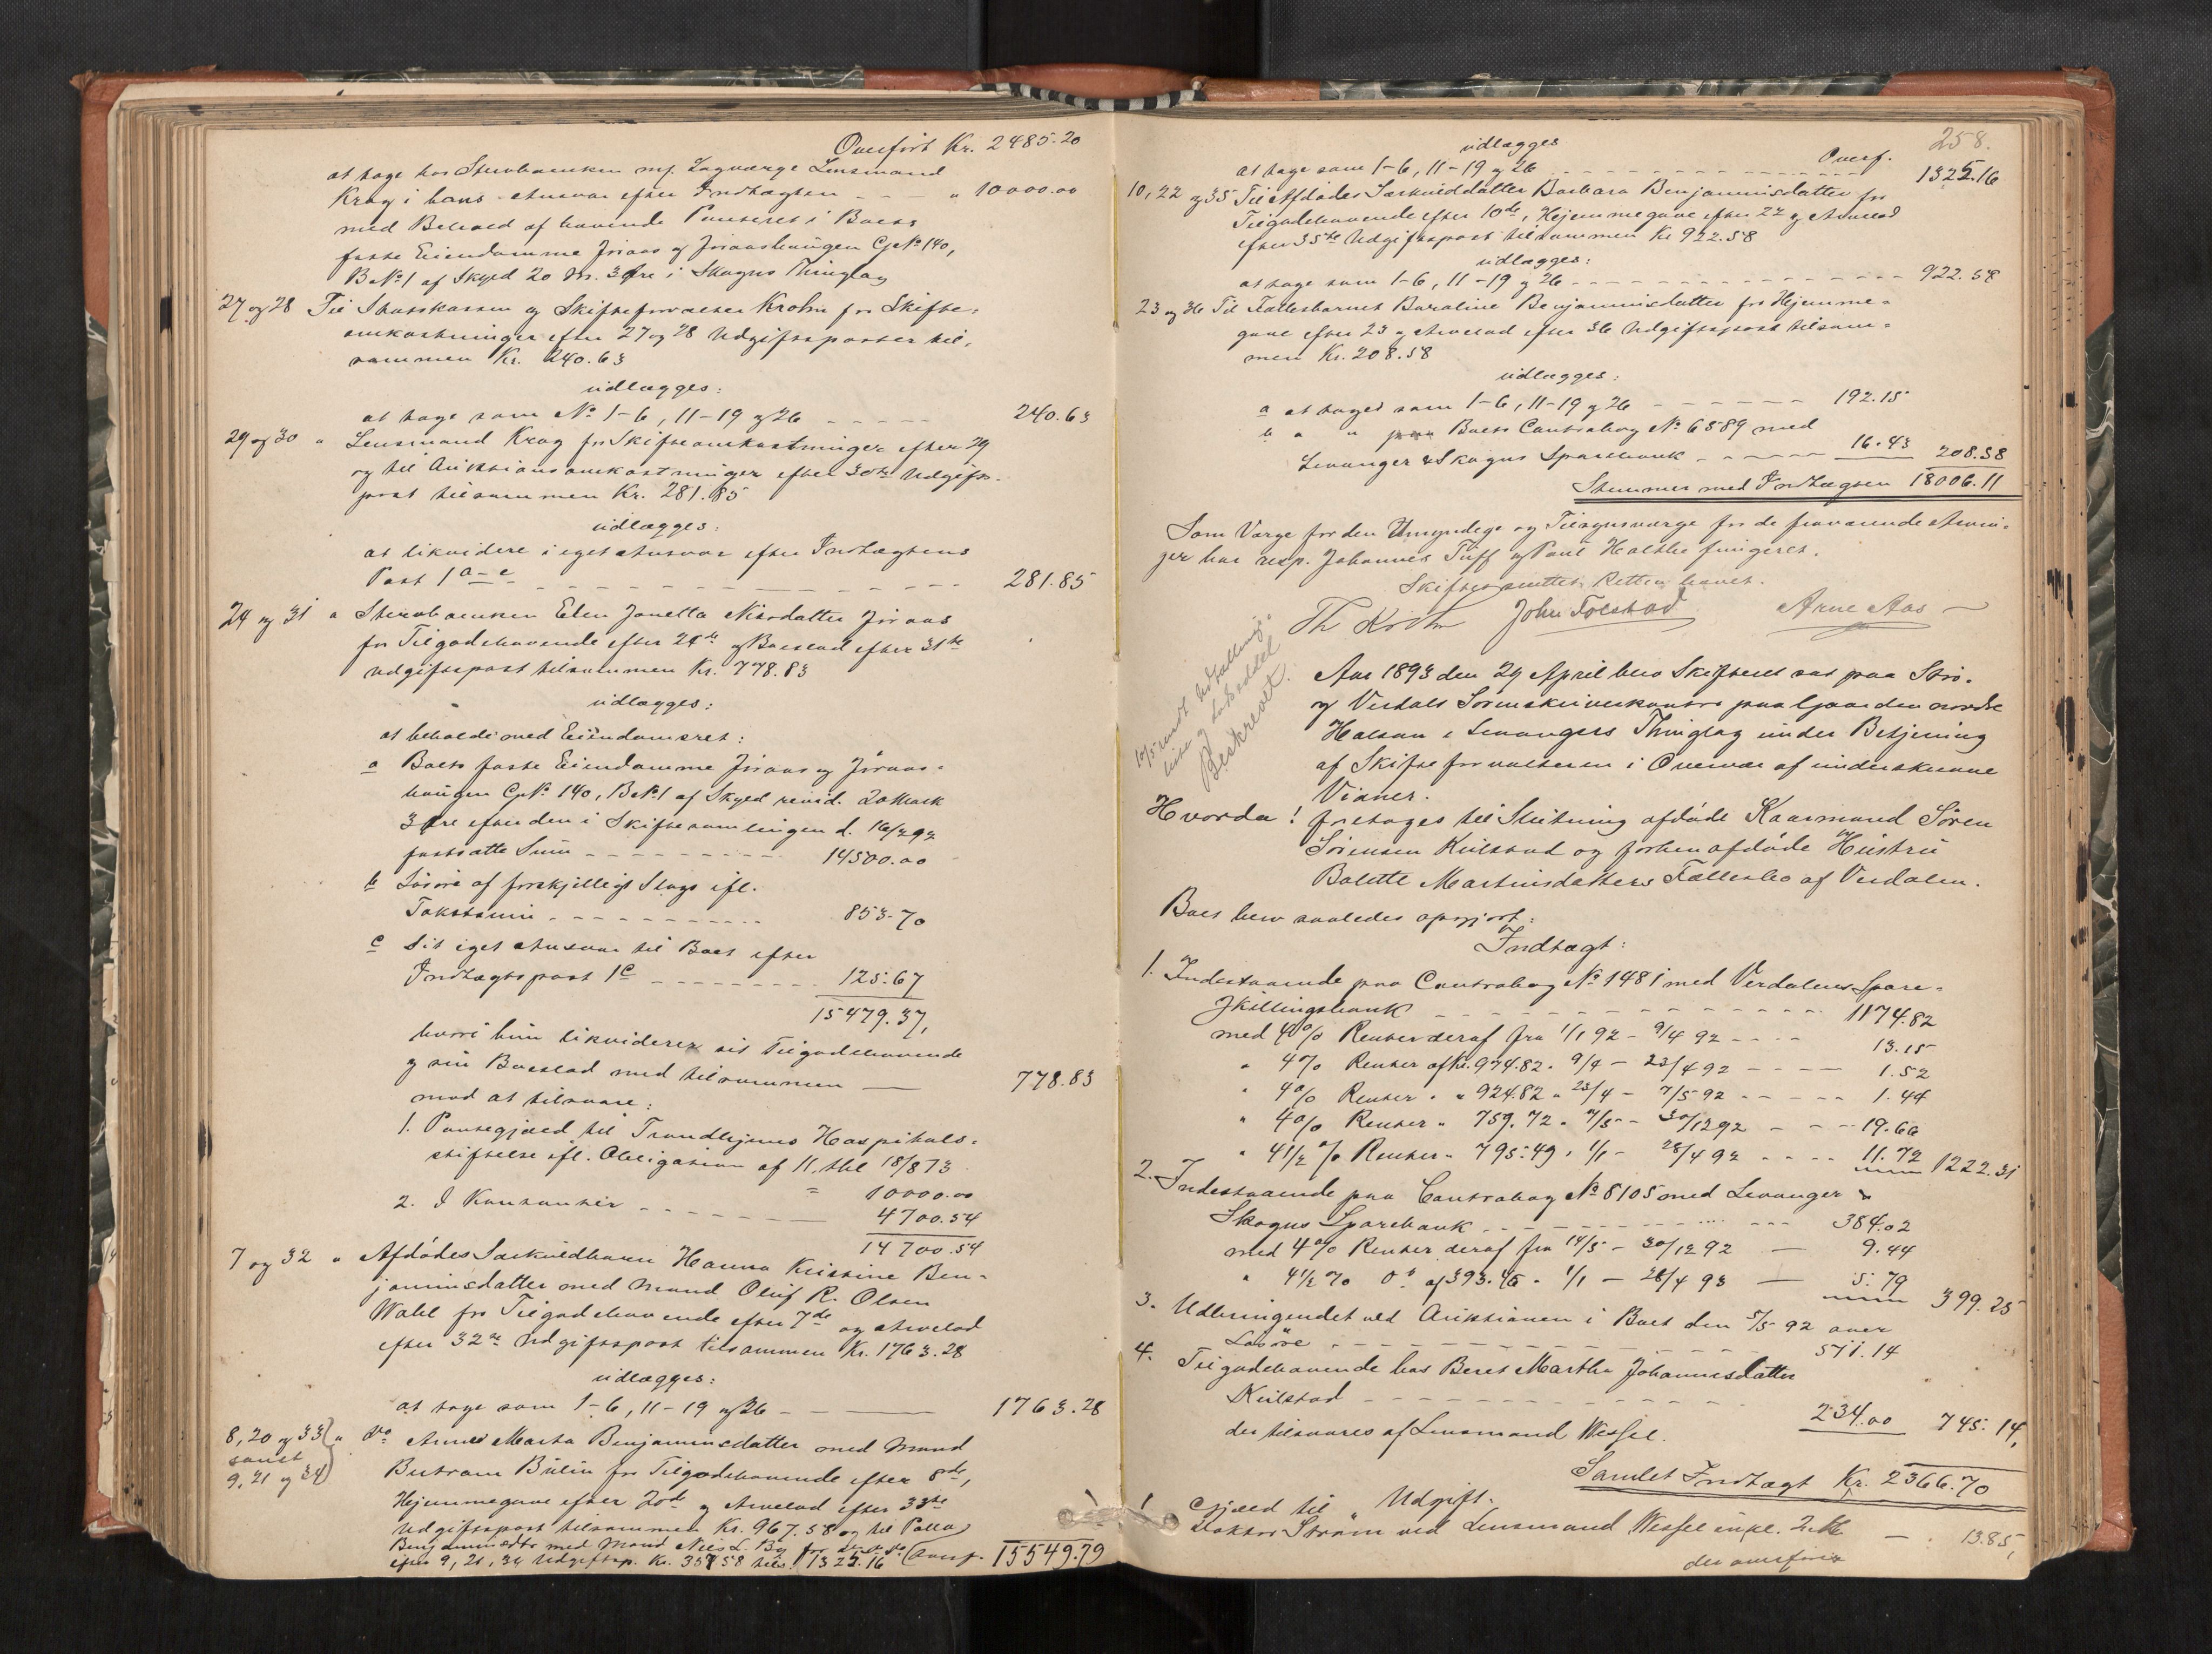 Overført Kr. 2485.20
at tage hos Stervboenken m/ Lagværge Lensmand
Krag i hans Ansvar efter Indtægten - - - " 10000.00
med Behold af havende Panteret i Boets
faste Eiendomme Jøraas og Jøraashaugen GNo 140,
BNo 1 af Skyld 20 M. 3 Øre i Skogns Thinglag
27 og 28 Til Statskassen og Skifteforvalter Krohn for Skifte-
omkostninger efter 27 og 28 Udgiftsposter til-
sammen Kr. 240.63
udlægges:
at tage som No 1-6, 11-19 og 26 - - - - - 240.63
29 og 30 " Lensmand Krag for Skifteomkostninger efter 29
og til Auktionsomkostninger efter 30te Udgifts-
post tilsammen Kr. 281.85
udlægges:
at likvidere i eget Ansvar efter Indtægtens
Post 1 a-c - - - - - - - - - - 281.85
24 og 31 " Stervboenken Elen Janetta Nilsdatter Jøraas
for Tilgodehavende efter 24de og Boeslod efter 31te
Udgiftspost tilsammen Kr. 778.83
udlægges:
at beholde med Eiendomsret:
a Boets faste Eiendomme Jøraas og Jøraas-
haugen GNo. 140, BNo 1 af Skyld revid. 20 Mark
3 Øre efter den i Skiftesamlingen d. 16/2 92
fastsatte Sum - - - - - - - - 14500.00
b Løsøre af forskjelligt Slags ifl.
Takstsum - - - - - - - - - - 853.70
c Sit eget Ansvar til Boet efter
Indtægtspost 1 c - - - - - - - - 125.67
15479.37,
hvori hun likviderer sit Tilgodehavende
og sin Boeslod med tilsammen — 778.83
mod at tilsvare:
1. Pantegjæld til Trondhjems Hospitals-
stiftelse ifl. Obligation af 11, thl 18/8 73
= 10000.00
2. I Kontanter - - - - - - - 4700.54
14700.54
7 og 32 " Afdødes Særkuldbarn Hanna Kristine Ben-
jaminsdatter med Mand Oluf R. Olsen
Wohl for Tilgodehavende efter 7de og Arvelod
efter 32te Udgiftspost tilsammen Kr. 1763.28
udlægges:
at tage som 1-6, 11-19 og 26 - — 1763.28
8, 20 og 33 " Do Anne Marta Benjaminsdatter med Mand
samt
9, 21 og 34
Butram Bülin for Tilgodehavende efter 8de,
Hjemmegave efter 20de og Arvelod efter 33te
Udgiftspost tilsammen Kr. 967.58 og til
Benjaminsdtr med Mand Nils L. By for
efter 9, 21, 34 Udgiftsp. Kr. 357.58 tils. 1325.16 Overf. 15549.79
258.
udlægges Overf.
at tage som 1-6, 11-19 og 26 - - - - - - - - - 1325.16
10, 22 og 35 Til Afdødes Særkulddatter Barbara Benjaminsdatter for
Tilgodehavende efter 10de, Hjemmegave efter 22 og Arvelod
efter 35te Udgiftspost tilsammen Kr 922.58
udlægges:
at tage som 1-6, 11-19 og 26 - - - - - - - - - 922.58
23 og 36 Til Fællesbarnet Baroline Benjaminsdatter for Hjemme-
gave efter 23 og Arvelod efter 36 Udgiftspost tilsam-
men Kr. 208.58
udlægges:
a at tages som 1-6, 11-19 og 26 - - - - - - 192.15
b " " paa Boets Contrabog No 6589 med
Levanger & Skogns Sparebank - - - - - 16.43 208.58
Stemmer med Indtægten 18006.11
Som Værge for den Umyndige og Tilsynsværge for de fraværende Arvin-
ger har resp. Johannes Tuff og Paul Halthe fungeret.
Skiftet sluttet. Retten hævet.
Th Krohn John Tolstad Arne Aas
Beskrevet.
Aar 1893 den 29 April blev Skifteret sat paa Stør-
og Verdals Sorenskriverkontor paa Gaarden nordre
Halsan i Levangers Thinglag under Betjening
af Skifteforvalteren i Overvær af underskrevne
Vidner.
Hvorda! foretoges til Slutning afdøde Kaarmand Søren
Sørensen Kulstad og forhen afdøde Hustru
Bolette Martinsdatters Fællesbo af Verdalen.
Boet blev saaledes opgjort:
Indtægt:
1. Indestaaende paa Contrabog No 1481 med Verdalens Spare-
skillingsbank - - - - - - - - - - 1174.82
med 4% Renter deraf fra 1/1 92 - 9/4 92 - - - - 13.15
" 4% Renter af Kr. 974.82 " 9/4 - 23/4 92 - - - - 1.52
" 4% Renter " " 924.82 " 23/4 - 7/5 92 - - - - - 1.44
" 4% Renter " 759.72 " 7/5 - 30/12 92 - - - 19.66
" 4 1/2 % Renter " 795.49 " 1/1 - 28/4 92 - - - - 11.72 1222.31
2. Indestaaende paa Contrabog No 8105 med Levanger &
Skogns Sparebank - - - - - - - - - - 384.02
med 4% Renter deraf fra 14/5 - 30/12 92 — 9.44
" 4 1/2 % Do af 393.46 " 1/1 — 28/4 93 — 5.79 399.25
3. Udbringendet ved Auktionen i Boet den 5/5 92 over
Løsøre - - - - - - - - - - 511.14
4. Tilgodehavende hos Beret Martha Johannesdatter
Kulstad - - - - - - - - - - 234.00 745.14,
der tilsvares af Lensmand Wessel.
Samlet Indtægt Kr. 2366.70
Udgift.
1 Gjæld til
Doktor Strøm ved Lensmand Wessel inkl. — 13.85,
der overføres